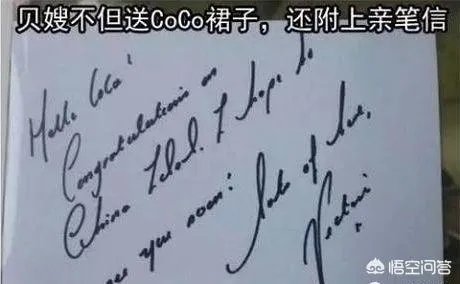 贝嫂不但送CoCo裙子，还附上亲笔信
Hello CoCo!
Congratulations on
China Island. I hope to
see you soon!
Lots of love,
悟空问答